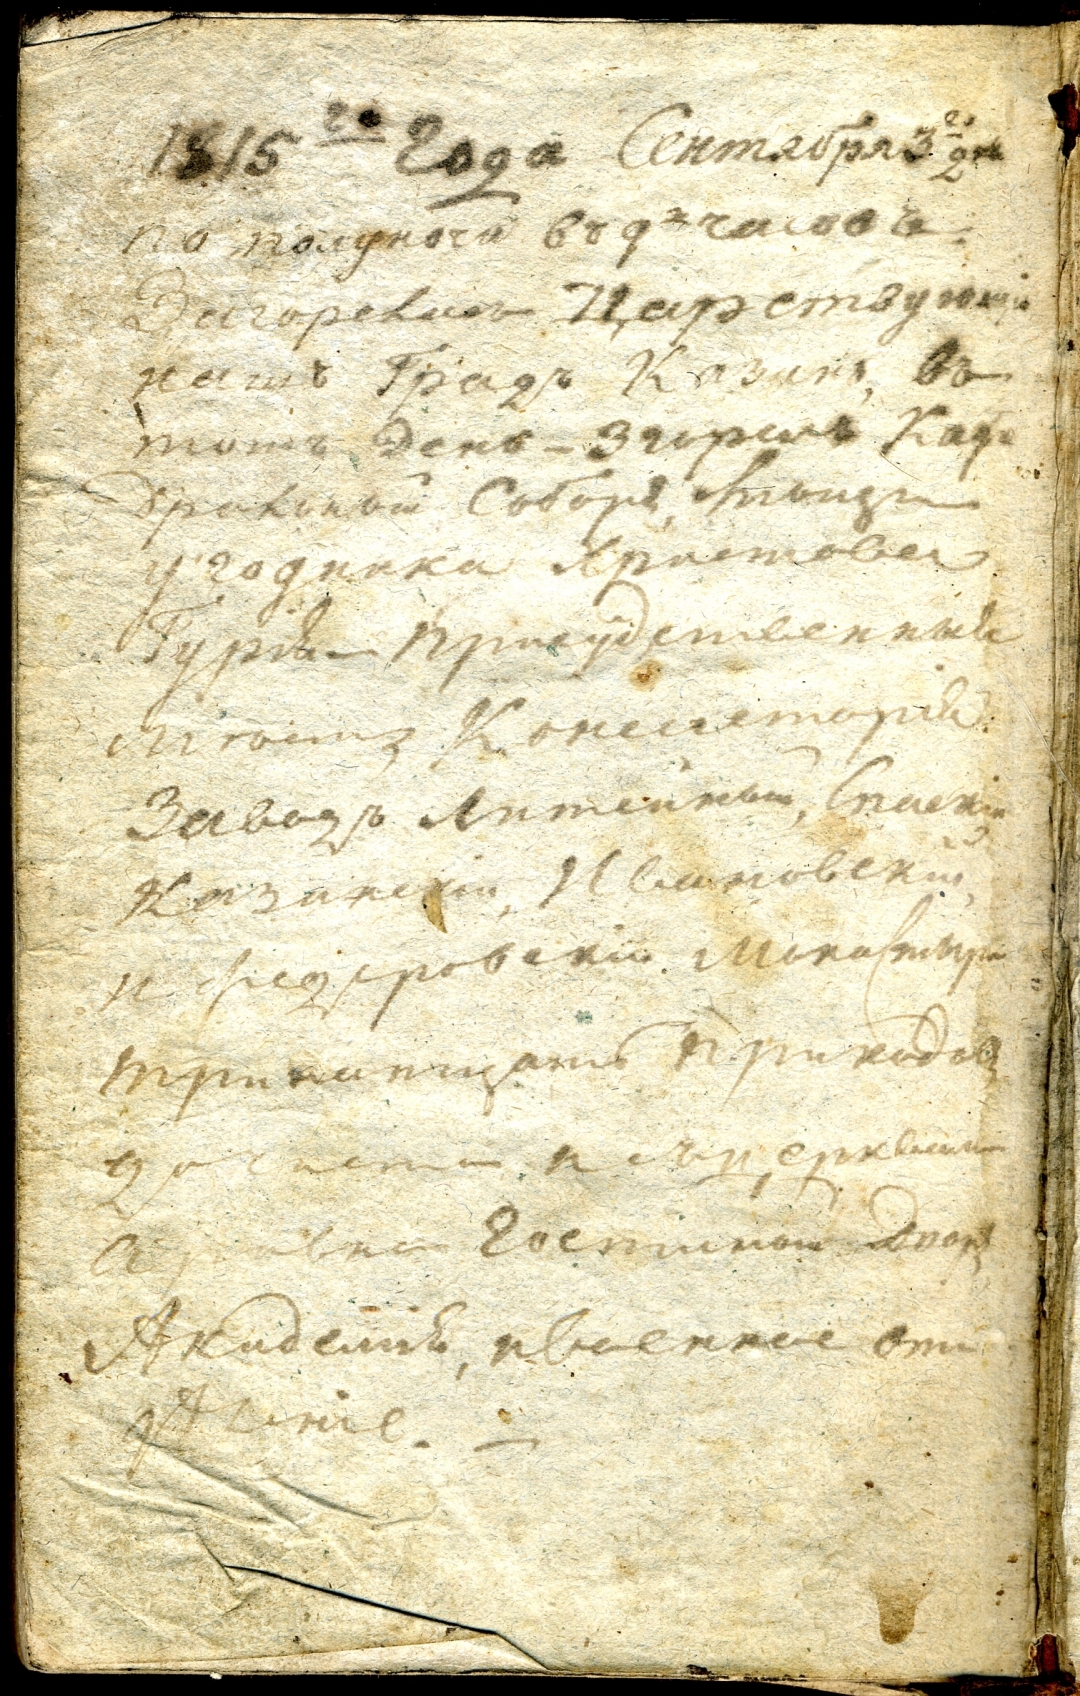 1815го Года Сентября 3го дня
по полуночи въ 9ть часовъ
Загорелась Царствующій
нашъ Градъ Казань, въ
тотъ День - Згорелъ Кафе
дральный Соборъ, Мощи
угодника Христова
Гурія Присудственныя
места Консисторія
Заводъ Литейный, Спаскій
Казанскій, Ивановскій,
и Федоровскій Монастыри
тринатцать Приходовъ
до чиста и съ церквами
Гостиной Дворъ
Академія, и военное отъ
дѣленіе. —